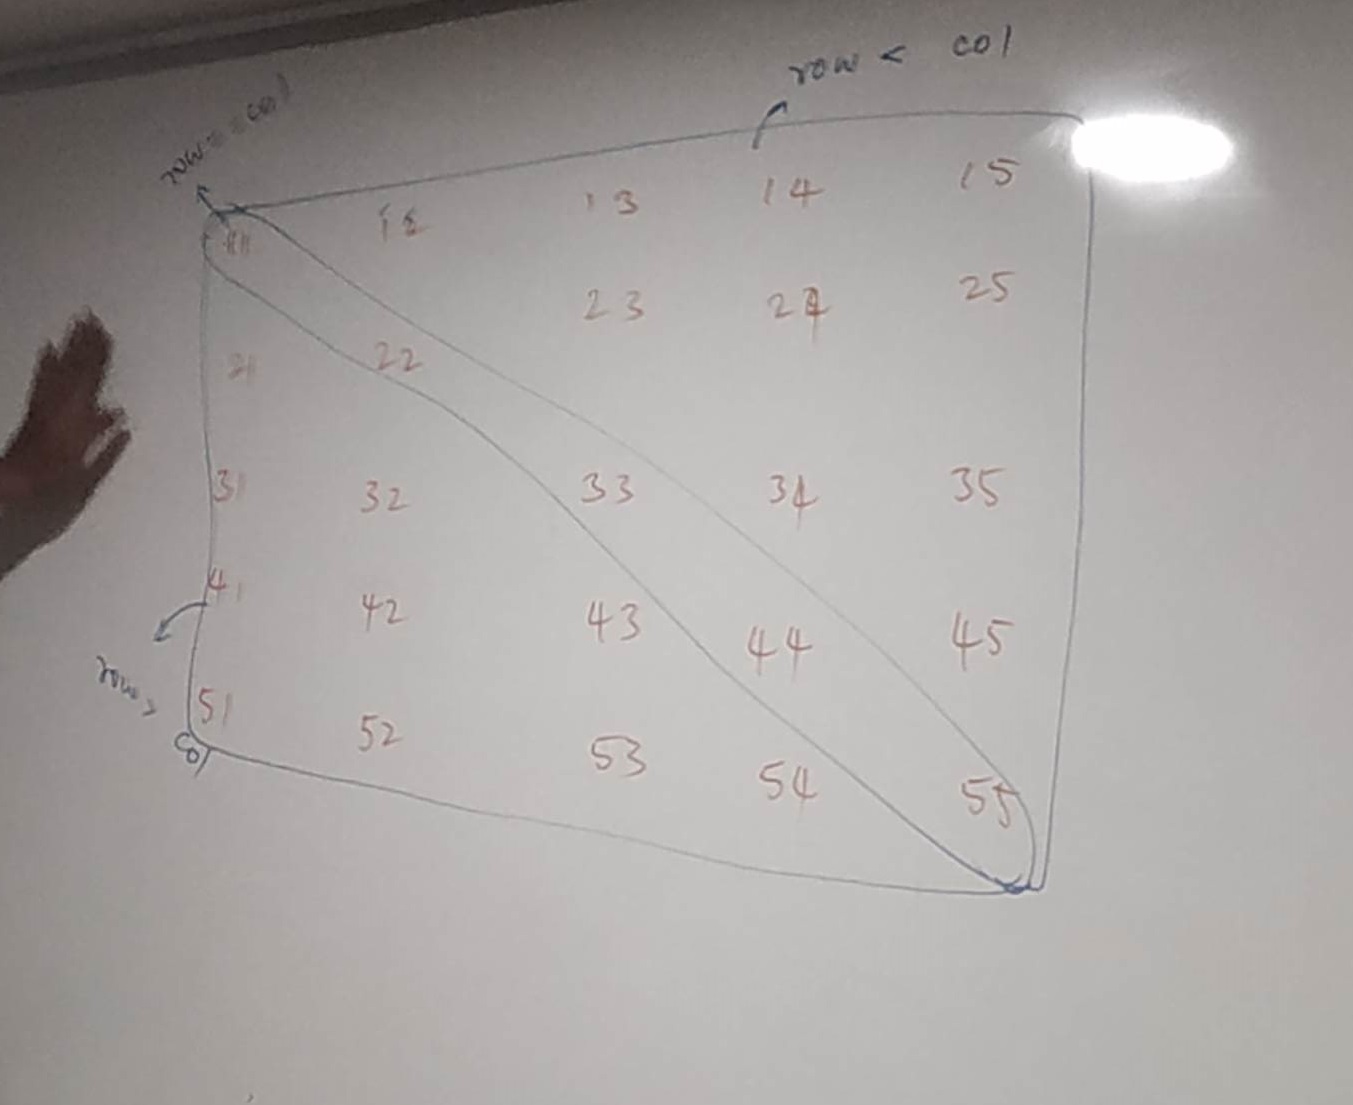 row < col
row == col
11 12 13 14 15
21 22 23 24 25
31 32 33 34 35
41 42 43 44 45
row >
51 52 53 54 55
col